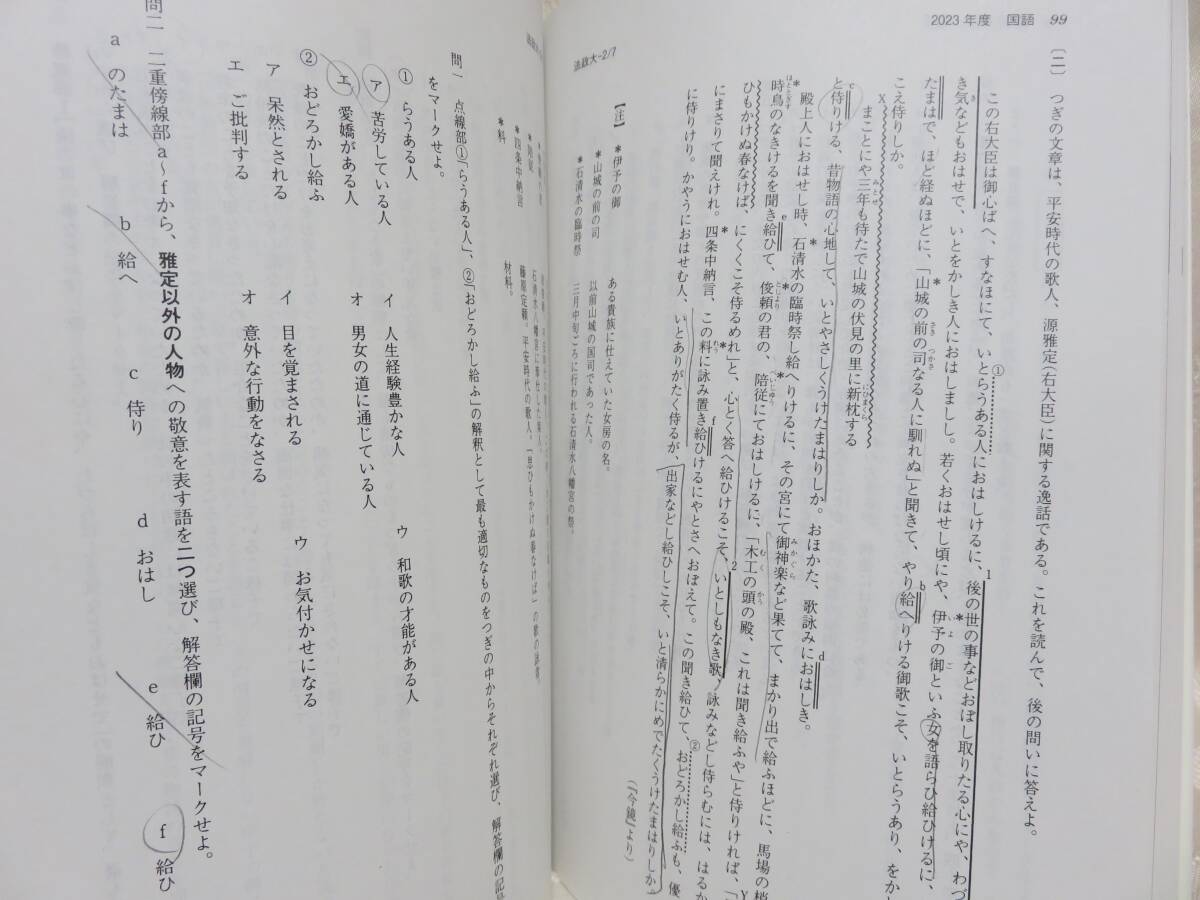 2023年度　国語　99
〔二〕　つぎの文章は、平安時代の歌人、源雅定(右大臣)に関する逸話である。これを読んで、後の問いに答えよ。
この右大臣は御心ばへ、すなほにて、いとらうある人におはしけるに、後の世の事などおぼし取りたる心にや、わづ
き気などもおはせで、いとをかしき人におはしましし。若くおはせし頃にや、伊予の御といふ女を語らひ給ひけるに、
たまはで、ほど経ぬほどに、「山城の前の司なる人に馴れぬ」と聞きて、やり給へりける御歌こそ、いとらうあり、をか
こえ侍りしか。
まことにや三年も待たで山城の伏見の里に新枕する
と侍りける、昔物語の心地して、いとやさしくうけたまはりしか。おほかた、歌詠みにおはしき。
殿上人におはせし時、石清水の臨時祭し給へりけるに、その宮にて御神楽など果てて、まかり出で給ふほどに、馬場の梢
時鳥のなきけるを聞き給ひて、俊頼の君の、陪従にておはしけるに、「木工の頭の殿、これは聞き給ふや」と侍りければ、「
ひもかけぬ春なけば、にくくこそ侍るめれ」と、心とく答へ給ひけるこそ、いとしもなき歌、詠みなどし侍らむには、はるか
にまさりて聞えけれ。四条中納言、この料に詠み置き給ひけるにやとさへおぼえて。この聞き給ひて、おどろかし給ふも、優
に侍りけり。かやうにおはせむ人、いとありがたく侍るが、出家などし給ひしこそ、いと清らかにめでたくうけたまはりしか。
(『今鏡』より)
【注】
＊伊予の御　ある貴族に仕えていた女房の名。
＊山城の前の司　以前山城の国司であった人。
＊石清水の臨時祭　三月中旬ごろに行われる石清水八幡宮の祭。
＊四条中納言　藤原定頼。平安時代の歌人。「思ひもかけぬ春なけば」の歌の詠者。
＊料　材料。
法政大−2/7
問一　点線部①「らうある人」、②「おどろかし給ふ」の解釈として最も適切なものをつぎの中からそれぞれ選び、解答欄の記号
をマークせよ。
①　らうある人
ア　苦労している人　イ　人生経験豊かな人　ウ　和歌の才能がある人
エ　愛嬌がある人　オ　男女の道に通じている人
②　おどろかし給ふ
ア　呆然とされる　イ　目を覚まされる　ウ　お気付かせになる
エ　ご批判する　オ　意外な行動をなさる
問二　二重傍線部a〜fから、雅定以外の人物への敬意を表す語を二つ選び、解答欄の記号をマークせよ。
a　のたまは　b　給へ　c　侍り　d　おはし　e　給ひ　f　給ひ